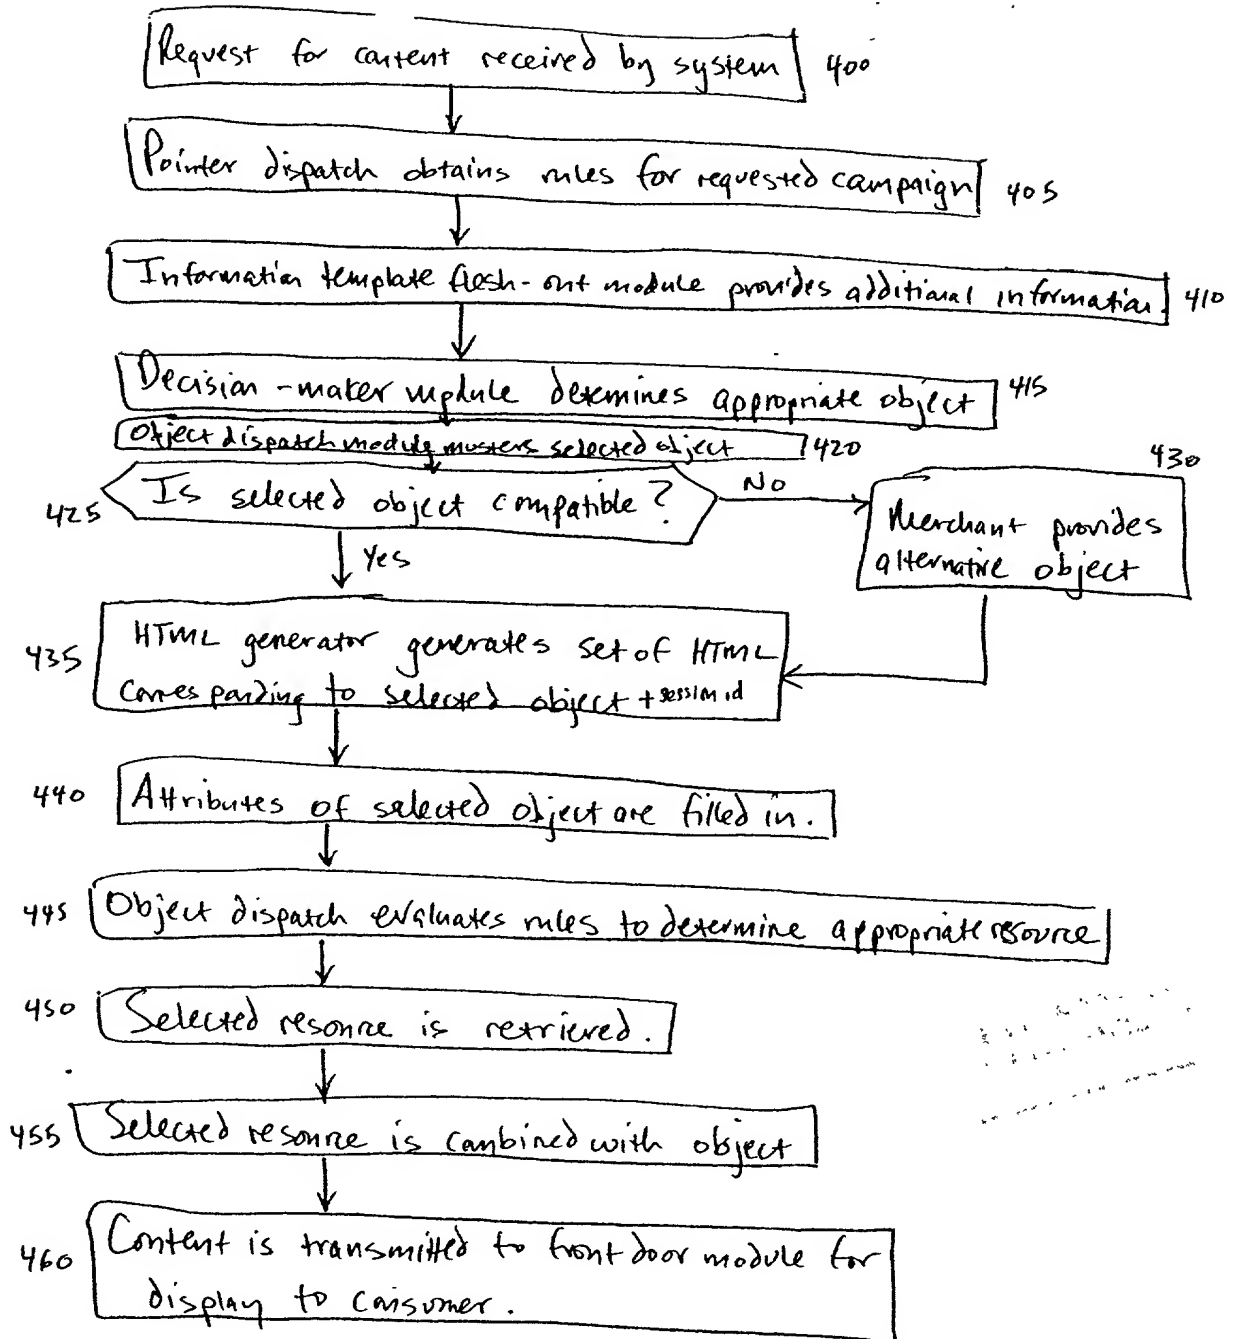 Request for content received by system 400
Pointer dispatch obtains rules for requested campaign 405
Information template flesh-out module provides additional information. 410
Decision-maker module determines appropriate object 415
Object dispatch module musters selected object 420
425 Is selected object compatible?
No
430
Merchant provides
alternative object
Yes
435
HTML generator generates set of HTML
corresponding to selected object + session id
440 Attributes of selected object are filled in.
445 Object dispatch evaluates rules to determine appropriate resource
450 Selected resource is retrieved.
455 Selected resource is combined with object
460
Content is transmitted to front door module for
display to consumer.